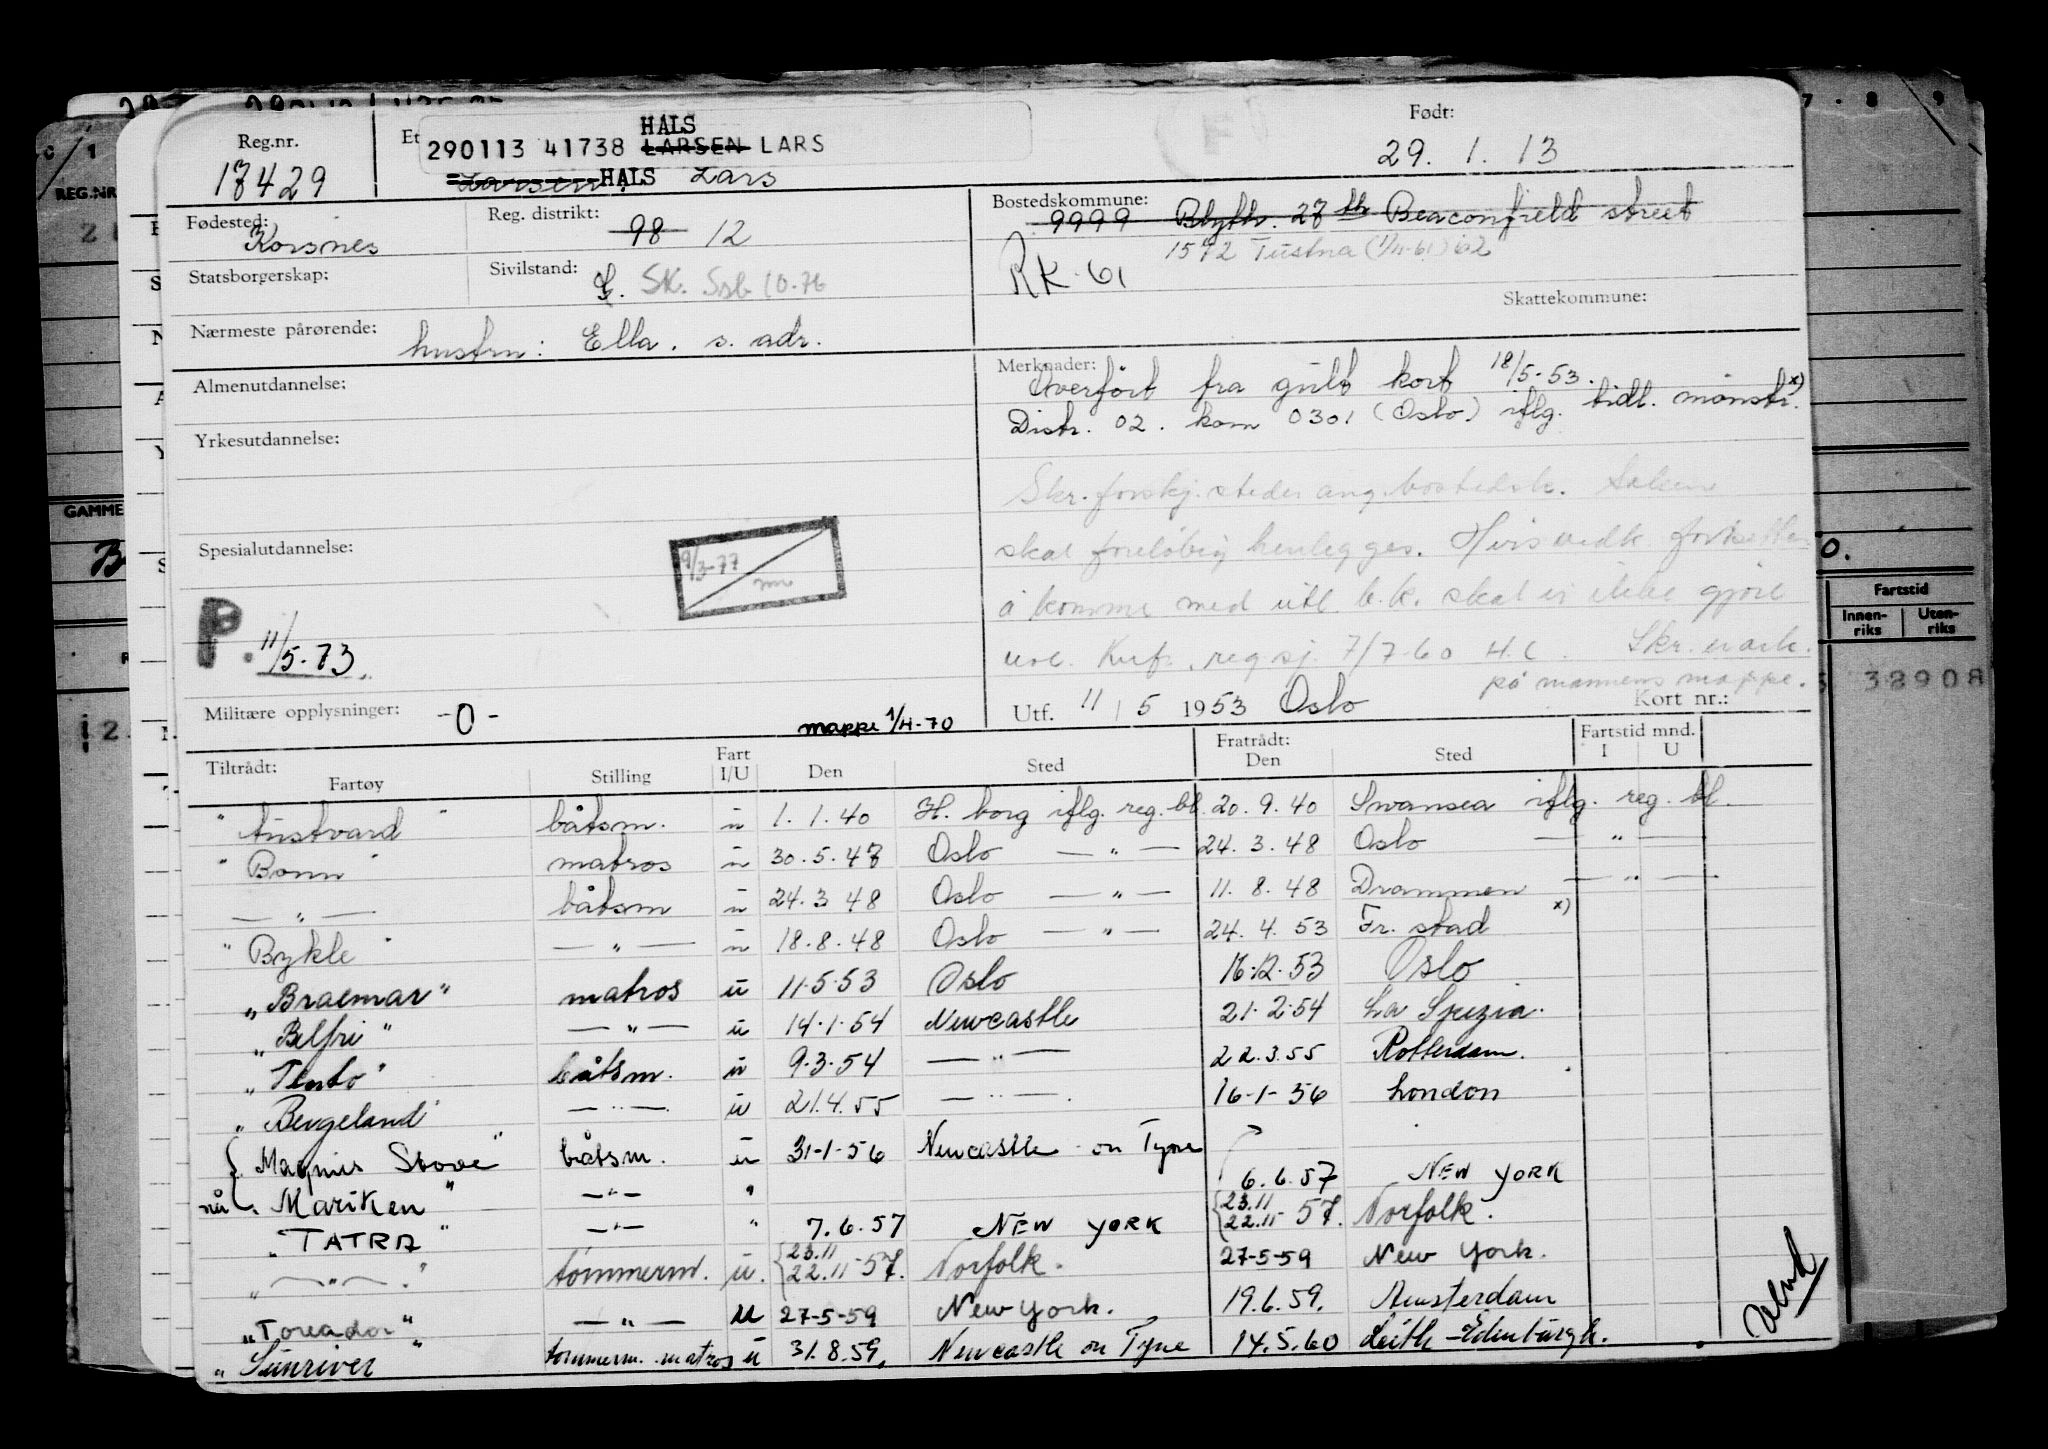 Reg.nr.
17429
Et
HALS
290113 41738 LARSEN LARS
Larsen HALS Lars
Født:
29. 1. 13
Fødested:
Korsnes
Reg. distrikt:
98 12
Bostedskommune:
9999 Blyth. 27 th Beaconfield street
1572 Tustna (1/4-61) 62
RK-61
Statsborgerskap:
Sivilstand:
G. SK. Ssb 10.76
Skattekommune:
Nærmeste pårørende:
hustru: Ella. s. adr.
Almenutdannelse:
Merknader:
Overført fra gult kort 18/5-53.
Distr. 02. kom 0301 (Oslo) iflg. tidl. mønstr. x)
Yrkesutdannelse:
Skr. forskj. steder ang. bostedsk. Saken
skal foreløbig henlegges. Hvis vedk fortsetter
å komme med utl b.k. skal vi ikke gjøre
noe. Konf. reg sj. 7/7-60 H.C. Skr. er ark.
på mannens mappe.
Spesialutdannelse:
9/3-77
P. 11/5-73
Militære opplysninger: -0-
mappe 1/4-70
Utf. 11/5 1953 Oslo
Kort nr.:
Tiltrådt:
Fartøy Stilling Fart I/U Den Sted Fratrådt: Den Sted Fartstid mnd. I U
"Austvard" båtsm. u 1.1.40 H. borg iflg. reg. bl. 20.9.40 Swansea iflg. reg. bl.
"Bonn" matros u 30.5.47 Oslo — " — 24.3.48 Oslo — " —
— " — båtsm u 24.3 48 Oslo — " — 11.8.48 Drammen — " —
"Bykle" — " — u 18.8.48 Oslo — " — 24.4.53 Fr. stad x)
"Braemar" matros u 11.5.53 Oslo 16.12.53 Oslo
"Belfri" — " — u 14.1.54 Newcastle 21.2.54 La Spezia.
"Tento" båtsm. u 9.3.54 — " — 22.3.55 Rotterdam.
"Bergeland" — " — u 21.4.55 — " — 16-1-56 London
{ Magnus Stove" båtsm. u 31-1-56 Newcastle on Tyne
nå Mariken" — " — " 6.6.57 NEW YORK
"TATRA" — " — " 7.6.57 NEW YORK {23.11 22.11-57. Norfolk.
"— " —" tømmerm. u. {23.11 22.11-57. Norfolk. 27-5-59 New York.
"Toreador" — " — u 27-5-59 New York. 19.6.59. Amsterdam
"Sunriver" tømmerm. matros u 31.8.59. Newcastle on Tyne 14.5.60 Leith - Edinburgh.
REG.NR
GAMME
Fartstid
Innen-riks
Uten-riks
38908
7 - 8 9